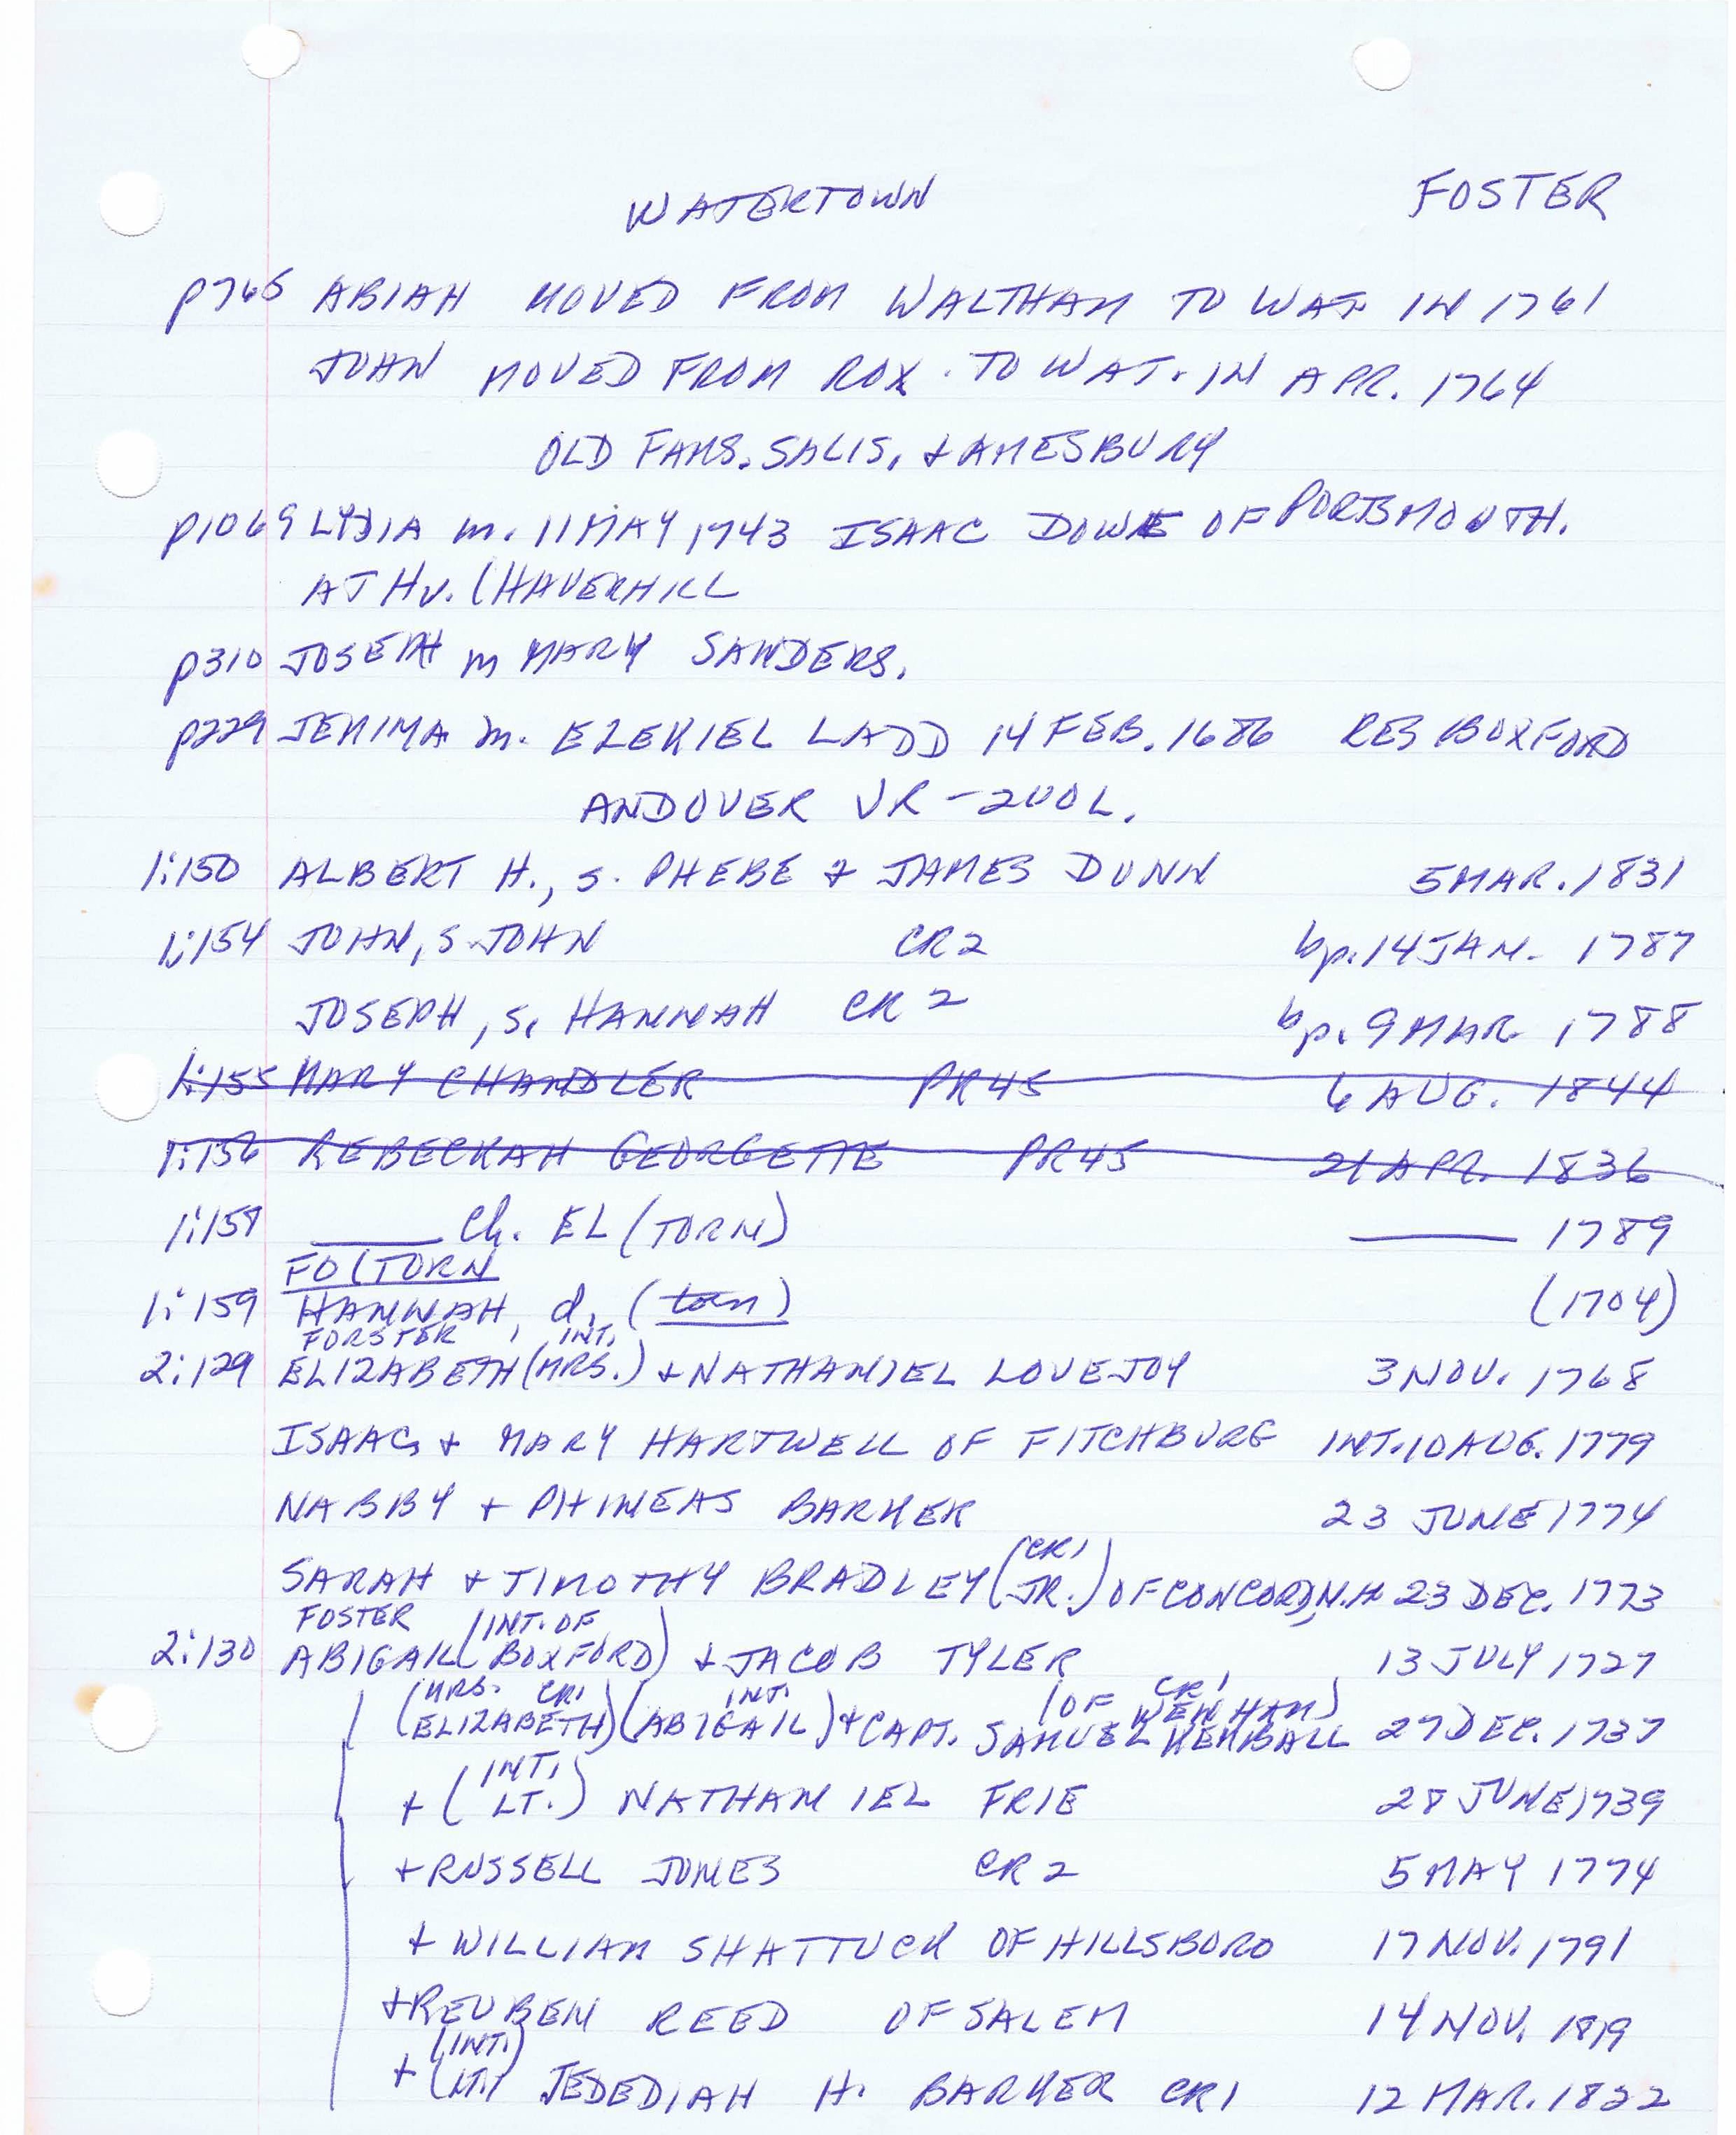 WATERTOWN FOSTER
p765 ABIAH MOVED FROM WALTHAM TO WAT IN 1761
JOHN MOVED FROM ROX. TO WAT. IN APR. 1764
OLD FAMS. SALIS. + AMESBURY
p1069 LYDIA m. 11 MAY 1743 ISAAC DOWE OF PORTSMOUTH.
AT HV. (HAVERHILL
p310 JOSEPH m MARY SANDERS.
p229 JEMIMA m. EZEKIEL LADD 14 FEB. 1686 RES BOXFORD
ANDOVER VR - 2VOL.
1:150 ALBERT H., s. PHEBE & JAMES DUNN 5 MAR. 1831
1:154 JOHN, S. JOHN CR2 bp. 14 JAN. 1787
JOSEPH, S. HANNAH CR2 bp. 9 MAR 1788
1:155 MARY CHANDLER PR45 6 AUG. 1844
1:156 REBECKAH GEORGETTE PR45 21 APR. 1836
1:158 ____ Ch. EL (TORN) ____ 1789
FO(TORN
1:159 HANNAH, d. (torn) (1704)
FORSTER, INT.
2:129 ELIZABETH (MRS.) + NATHANIEL LOVEJOY 3 NOV. 1768
ISAAC, + MARY HARTWELL OF FITCHBURG INT. 10 AUG. 1779
NABBY + PHINEAS BARKER 23 JUNE 1774
(CR1
SARAH + TIMOTHY BRADLEY (JR.) OF CONCORD, N.H 23 DEC. 1773
FOSTER (INT. OF
2:130 ABIGAIL (BOXFORD) + JACOB TYLER 13 JULY 1727
(MRS. CR1 INT. (OF CR1 WENHAM)
(ELIZABETH) (ABIGAIL) + CAPT. SAMUEL KEMBALL 27 DEC. 1737
(INT.
+ (LT.) NATHANIEL FRIE 28 JUNE 1739
+ RUSSELL JONES CR2 5 MAY 1774
+ WILLIAM SHATTUCK OF HILLSBORO 17 NOV. 1791
+ REUBEN REED OF SALEM 14 NOV. 1819
(INT.)
+ (LT.) JEDEDIAH H. BARKER CR1 12 MAR. 1822